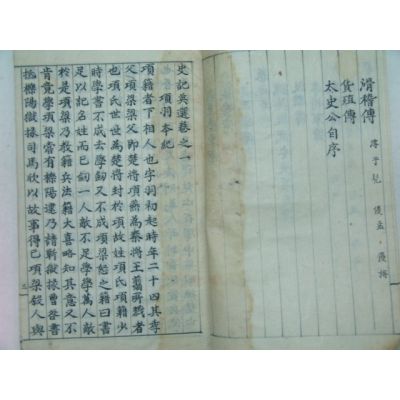 滑稽傳
淳于髡 優孟 優旃
貨殖傳
太史公自序
史記英選卷之一
項羽本紀
項籍者下相人也字羽初起時年二十四其季
父項梁梁父即楚將項燕爲秦將王翦所戮者
也項氏世世爲楚將封於項故姓項氏項籍少
時學書不成去學劒又不成項梁怒之籍曰書
足以記名姓而已劒一人敵不足學學萬人敵
於是項梁乃教籍兵法籍大喜略知其意又不
肯竟學項梁嘗有櫟陽逮乃請蘄獄掾曹咎書
抵櫟陽獄掾司馬欣以故事得已項梁殺人與